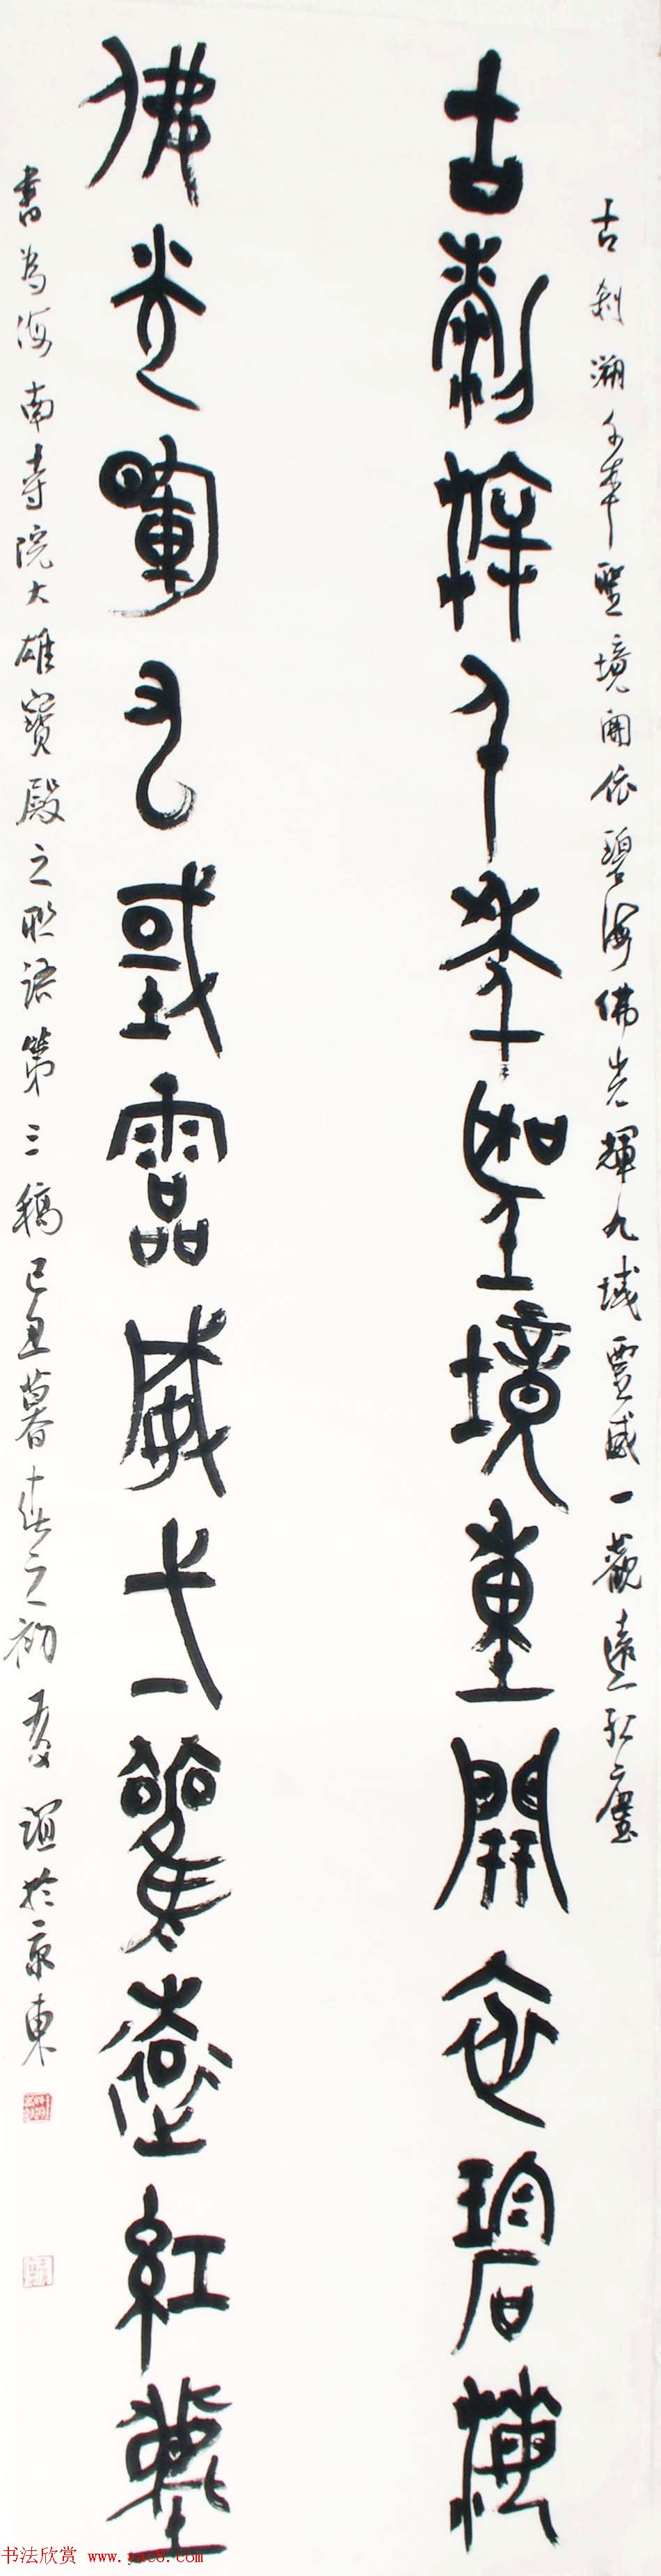 古剎溯千年聖境開依碧海佛光輝九域靈威一觀遠紅塵
古剎溯千年聖境重開依碧海
佛光暉九域靈威一觀遠紅塵
書為海南寺院大雄寶殿之聯語第三稿己丑暮春之初夏誼於京東
书法欣赏 www.yac8.com